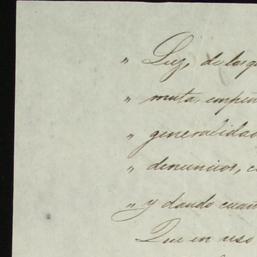 " Luz, de los q
" mata, empeñ
" generalidad
" denuncios, c
" y dando cuan
Que en uso